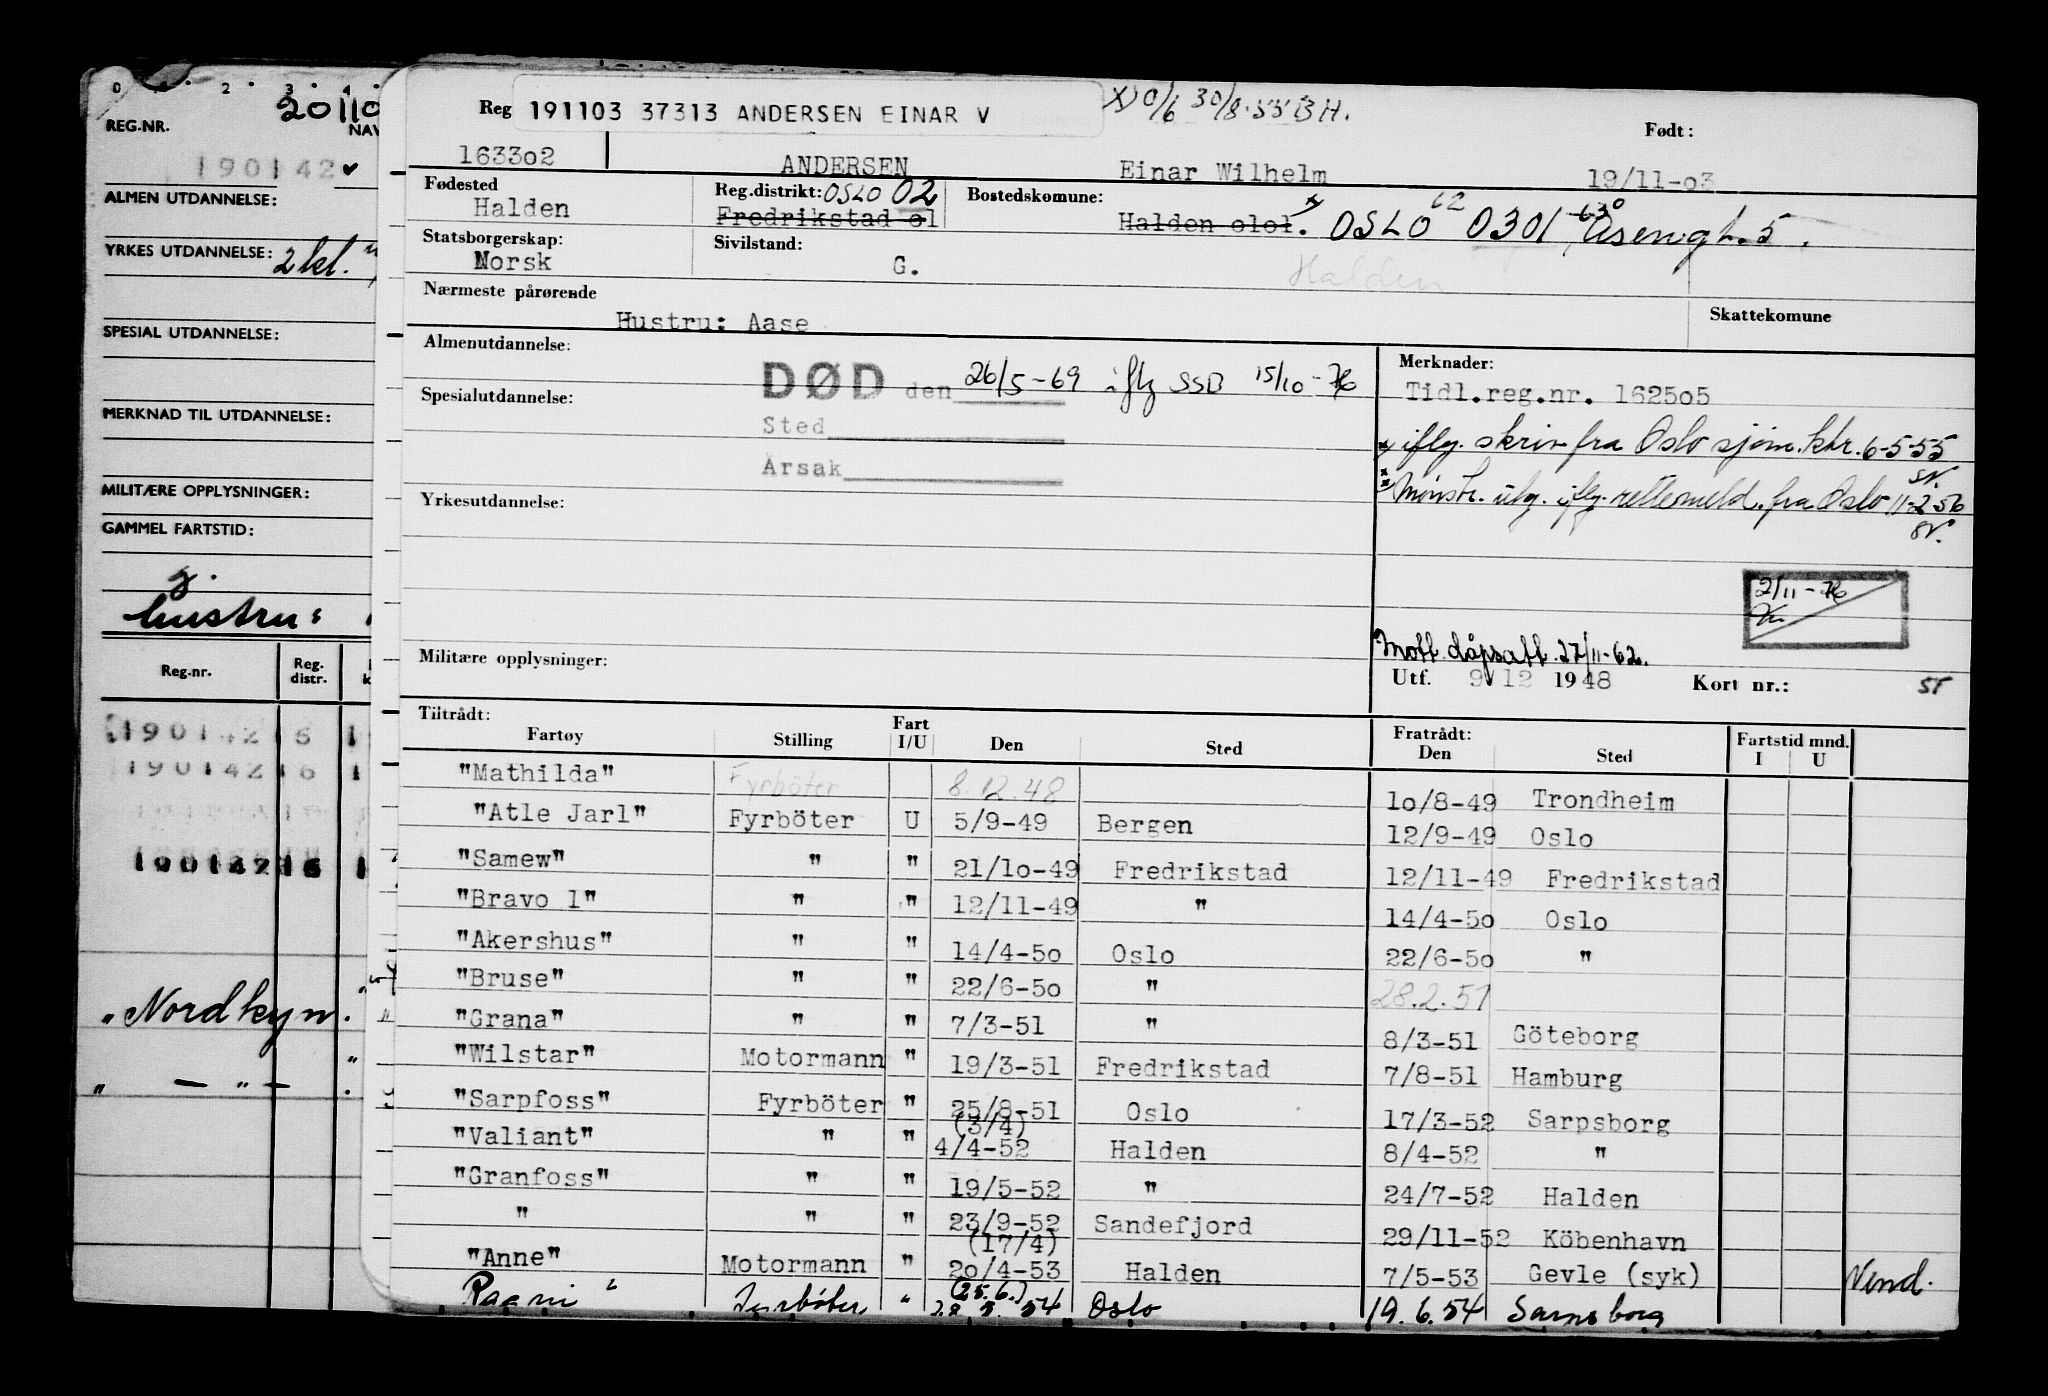 0 2 3 4
20110
REG.NR. NAV
190142
ALMEN UTDANNELSE:
YRKES UTDANNELSE: 2 kl.
SPESIAL UTDANNELSE:
MERKNAD TIL UTDANNELSE:
MILITÆRE OPPLYSNINGER:
GAMMEL FARTSTID:
g.
hustru:
Reg.nr. Reg. distr.
190142 6 1
190142 6 1
190142 16 1
"Nordkyn"
" — " —
Reg 191103 37313 ANDERSEN EINAR V X) 0/6 30/8-55 BH.
Født:
163302 ANDERSEN Einar Wilhelm 19/11-03
Fødested Reg.distrikt: OSLO 02 Bostedskomune:
Halden Fredrikstad 01 Halden 0101. OSLO 0301 Åsengt. 5.
Statsborgerskap: Sivilstand:
Norsk G. Halden
Nærmeste pårørende
Hustru: Aase Skattekomune
Almenutdannelse: Merknader:
DØD den 26/5-69 iflg SSB 15/10-76
Tidl.reg.nr. 162505
Spesialutdannelse:
Sted
x iflg. skriv fra Oslo sjøm.ktr. 6-5-55
Årsak
x Mønstr. utg. iflg. rettemeld. fra Oslo 11-2-56
Yrkesutdannelse:
2/11-76
Mott dåpsatt. 27/11-62.
Militære opplysninger:
Utf. 9/12 1948 Kort nr.:
Tiltrådt: Fart Fratrådt: Fartstid mnd.
Fartøy Stilling I/U Den Sted Den Sted I U
"Mathilda" Fyrböter 8.12.48 10/8-49 Trondheim
"Atle Jarl" Fyrböter U 5/9-49 Bergen 12/9-49 Oslo
"Samew" " " 21/10-49 Fredrikstad 12/11-49 Fredrikstad
"Bravo 1" " " 12/11-49 " 14/4-50 Oslo
"Akershus" " " 14/4-50 Oslo 22/6-50 "
"Bruse" " " 22/6-50 " 28.2.51
"Grana" " " 7/3-51 " 8/3-51 Göteborg
"Wilstar" Motormann " 19/3-51 Fredrikstad 7/8-51 Hamburg
"Sarpfoss" Fyrböter " 25/8-51 Oslo 17/3-52 Sarpsborg
(3/4)
"Valiant" " " 4/4-52 Halden 8/4-52 "
"Granfoss" " " 19/5-52 " 24/7-52 Halden
" " " 23/9-52 Sandefjord 29/11-52 Köbenhavn
(17/4)
"Anne" Motormann " 20/4-53 Halden 7/5-53 Gevle (syk) Vend.
(25.6.)
Ragni " Fyrböter " 28.5.54 Oslo 19.6.54 Sarpsborg